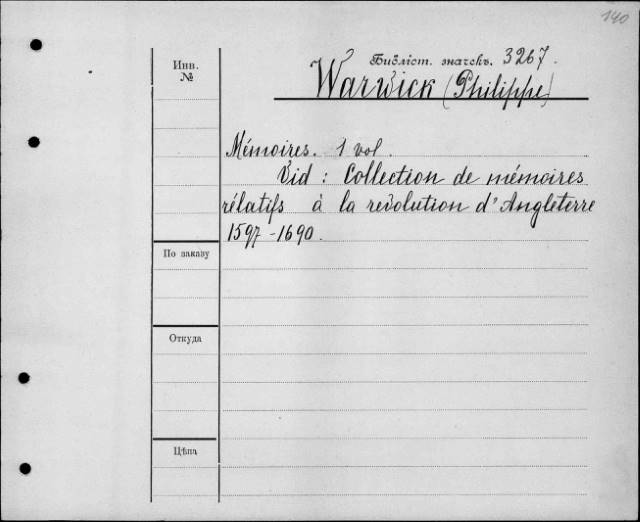 140
Инв.
№
Библіот. значекъ. 3267.
Warwick (Philippe)
Mémoires. 1 vol.
Vid : Collection de mémoires
rélatifs à la revolution d'Angleterre
1597-1690.
По заказу
Откуда
Цѣна